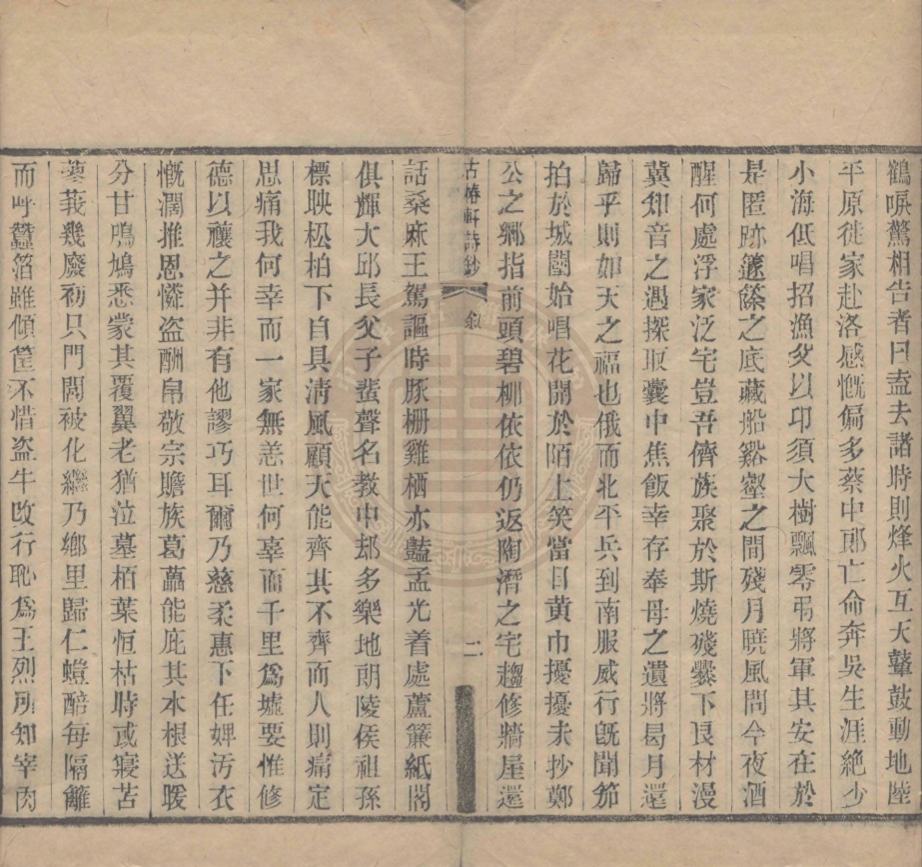 鶴唳驚相告者曰盍去諸時則烽火互天鼙鼓動地陸
平原徙家赴洛感慨偏多蔡中郎亡命奔吳生涯絶少
小海低唱招漁父以卬須大樹飄零弔將軍其安在於
是匿跡蘧蒢之底藏船谿壑之間殘月曉風問今夜酒
醒何處浮家泛宅豈吾儕族聚於斯燒殘爨下良材漫
冀知音之遇探取囊中焦飯幸存奉母之遺將曷月還
歸乎則如天之福也俄而北平兵到南服威行旣聞笳
拍於城闉始唱花開於陌上笑當日黄巾擾擾未抄鄭
公之鄉指前頭碧柳依依仍返陶潛之宅趨修牆屋還
古椿軒詩鈔
叙
二
話桑麻王駕謳時豚栅雞栖亦藍孟光着處蘆簾紙閣
俱輝大邱長父子蜚聲名教中却多樂地朗陵侯祖孫
標映松柏下自具淸風顧天能齊其不齊而人則痛定
思痛我何幸而一家無恙世何辜而千里爲墟要惟修
德以禳之并非有他謬巧耳爾乃慈柔惠下任婢汚衣
慨濶推恩憐盗酬帛敬宗贍族葛藟能庇其本根送暖
分甘鳲鳩悉蒙其覆翼老猶泣墓栢葉恒枯時或寝苫
蓼莪幾廢初只門閭被化繼乃鄉里歸仁螘醅每隔籬
而呼蠶箔雖傾筐不惜盗牛改行恥爲王烈所知宰肉